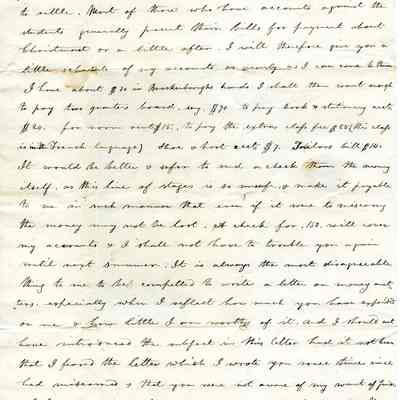 to settle. Most of those who have accounts against the
students generally present their bills for payment about
Christmas or a little after. I will therefore give you a
little schedule of my accounts as nearly as I can come to them
I have about $30 in hands I shall then want enough
to pay two quarters board, say, $70 to pay book & stationery acct
$20. for room rent $15. to pay the extra class fee (this class
is in the French language) shoe & boot acct $7. Tailors bill $10.
It would be better & safer to send a check than the money
itself, as this line of stages is so unsafe, & make it payable
to me in such manner that even if it were to miscarry
the money may not be lost. A check for 150. will cover
my accounts & I shall not have to trouble you again
until next summer. It is always the most disagreeable
thing to me to be compelled to write a letter on money mat
ters, especially when I reflect how much you have expended
on me & how little I am worthy of it. And I should not
have introduced the subject in this letter had it not been
that I feared the letter which I wrote you some time since
had miscarried & that you were not aware of my want of